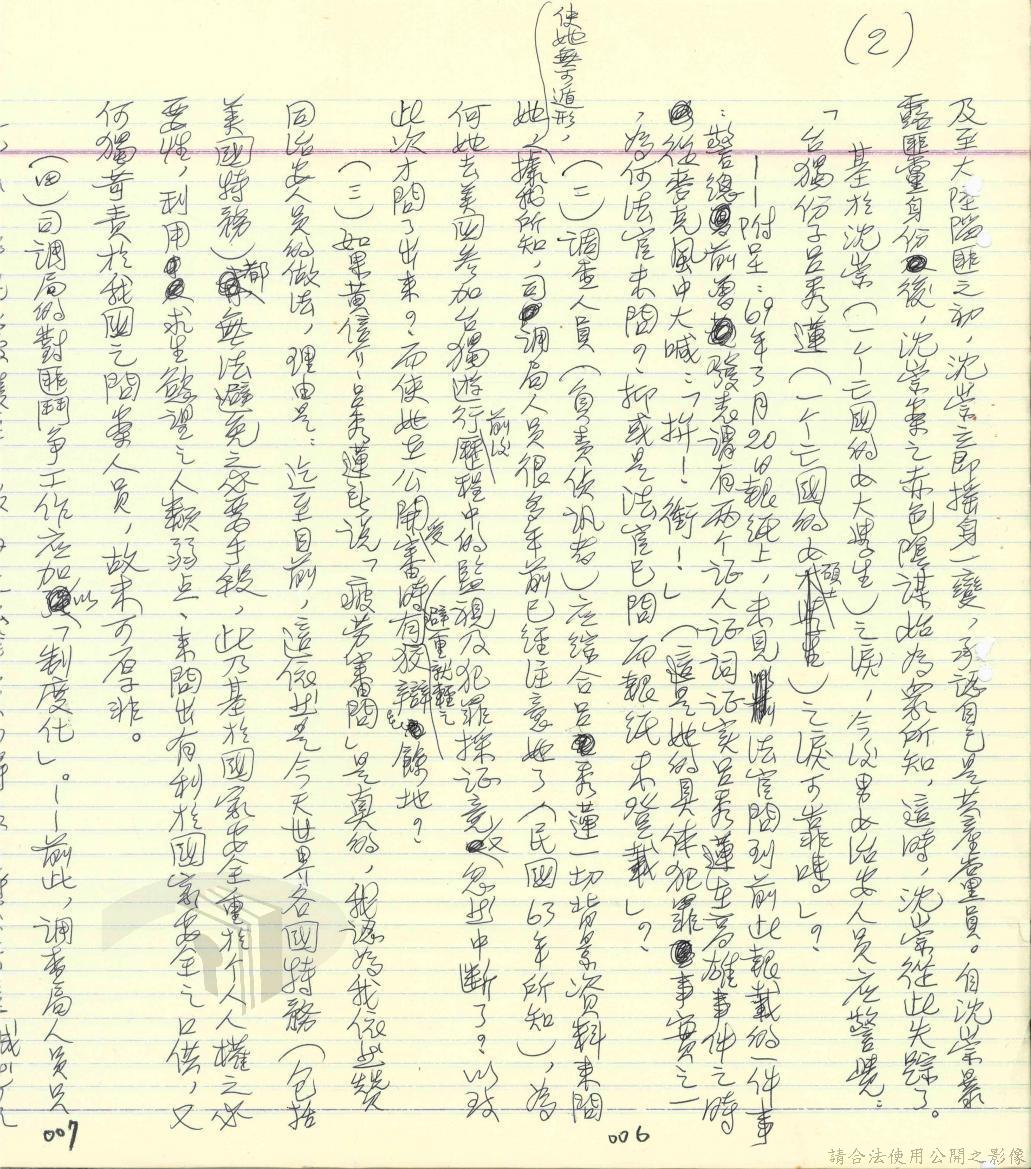 (2)
及至大陸陷匪之初，沈崇立即搖身一變，承認自己是共產黨員。自沈崇暴
露匪黨身份後，沈崇案之赤色陰謀始為眾所知，這時，沈崇從此失踪了。
基於沈崇（一个亡國的女大學生）之淚，今後男女治安人員应警覺：
「台獨份子呂秀蓮（一个亡國的女碩士）之淚可靠嗎」？
——附呈：69年3月20日報紙上，未見法官問到前此報載的一件事
：警總前曾發表謂有两个证人证詞证实呂秀蓮在高雄事件之時
從麥克風中大喊：「拚！衝！」（這是她的具体犯罪事實之一
，為何法官未問？抑或是法官已問而報紙未登載」？
（二）調查人員（負責偵訊者）应綜合呂秀蓮一切背景資料來問
她，使她無可遁形，（據我所知，司調局人員很多年前已經注意她了（民國63年所知），為
何她去美國參加台獨遊行前後歷程中的監視及犯罪採证竟又忽然中斷了？以致
此次才問了出來？而使她在公開審時有狡辯避重就輕之餘地？
（三）如果黃信介、呂秀蓮所說「疲劳審問」是真的，我認為我依然贊
同治安人員的做法，理由是：迄至目前，這依然是今天世界各國特務（包括
美國特務）都無法避免之必要手段，此乃基於國家安全重於个人人權之必
要性，利用求生慾望之人類弱点，來問出有利於國家安全之口供，又
何獨苛責於我國之問案人員，故未可厚非。
（四）司調局的對匪鬥争工作应加以「制度化」。——前此，調查局人員只
007
006
請合法使用公開之影像